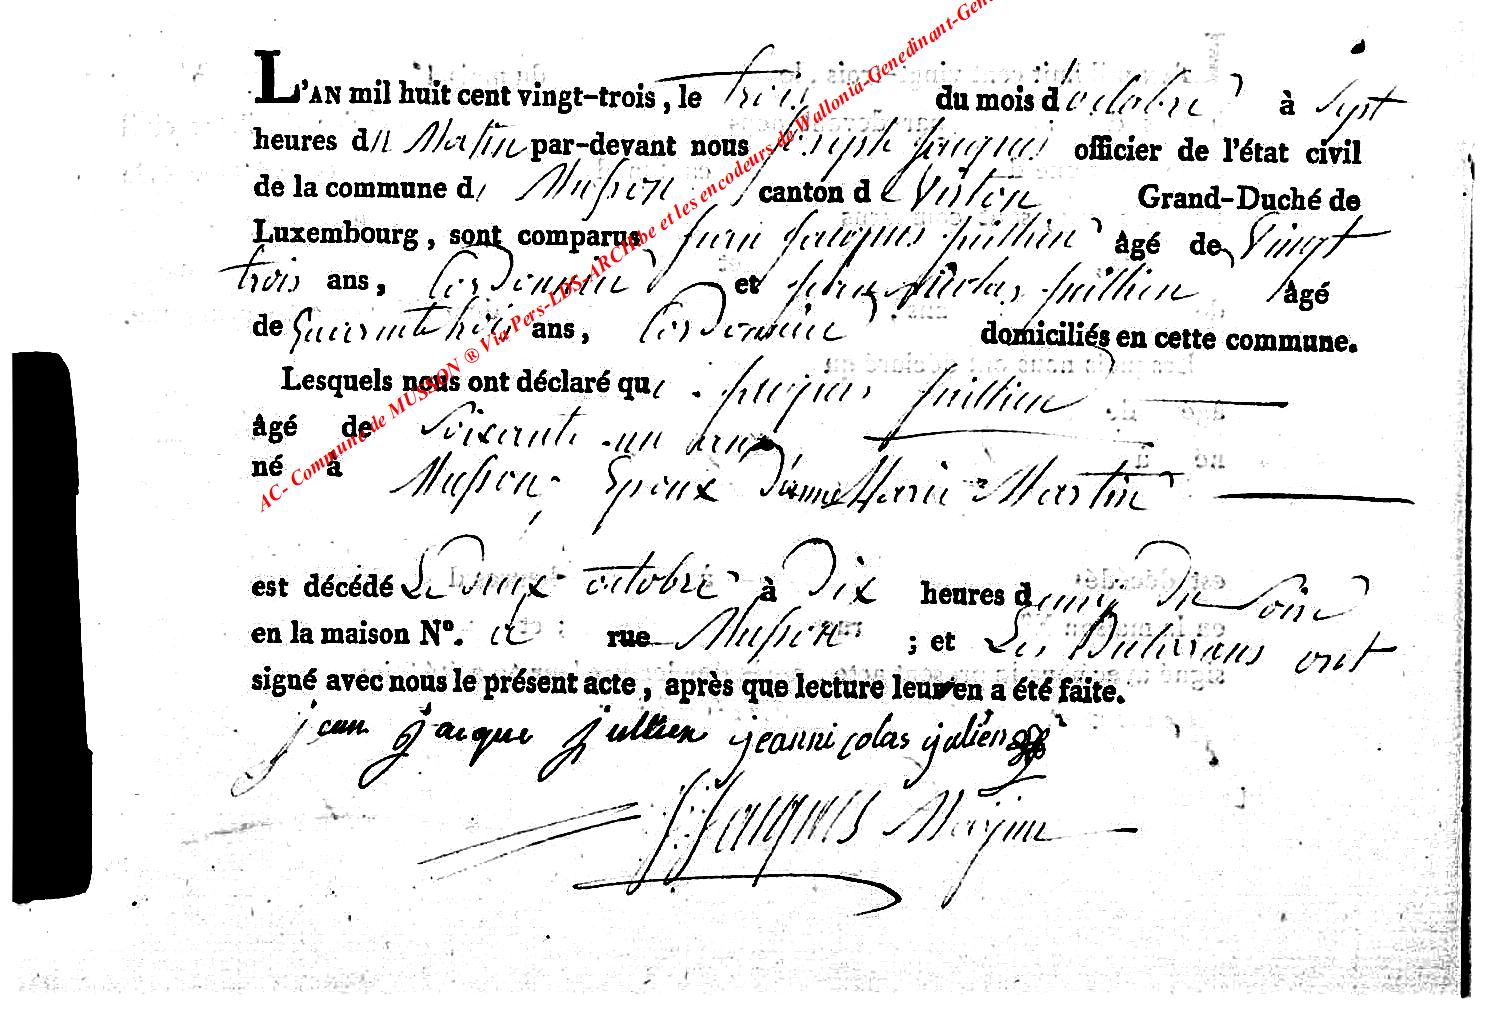 L'AN mil huit cent vingt-trois, le trois du mois d'octobre à Sept
heures du Matin par-devant nous Joseph Jacques officier de l'état civil
de la commune de Musson canton de Virton Grand-Duché de
Luxembourg, sont comparus Jean Jacques Jullien âgé de Vingt
trois ans, Cordonnier et Jean Nicolas Jullien âgé
de Quarante trois ans, Cordonnier domiciliés en cette commune.
Lesquels nous ont déclaré que Jacques Jullien
âgé de Soixante un ans
né à Musson Epoux d'anne Marie Martin
est décédé Le Deux octobre à Dix heures demi Du Soir
en la maison N°. a rue Musson ; et Les ont
signé avec nous le présent acte, après que lecture leur en a été faite.
jean jacque jullien jeanni colas julien
J: Jacques
AC- Commune de MUSSON ® Via Pers-LDS-ARCH.be et les encodeurs de Wallonia-Genedinant-Gen